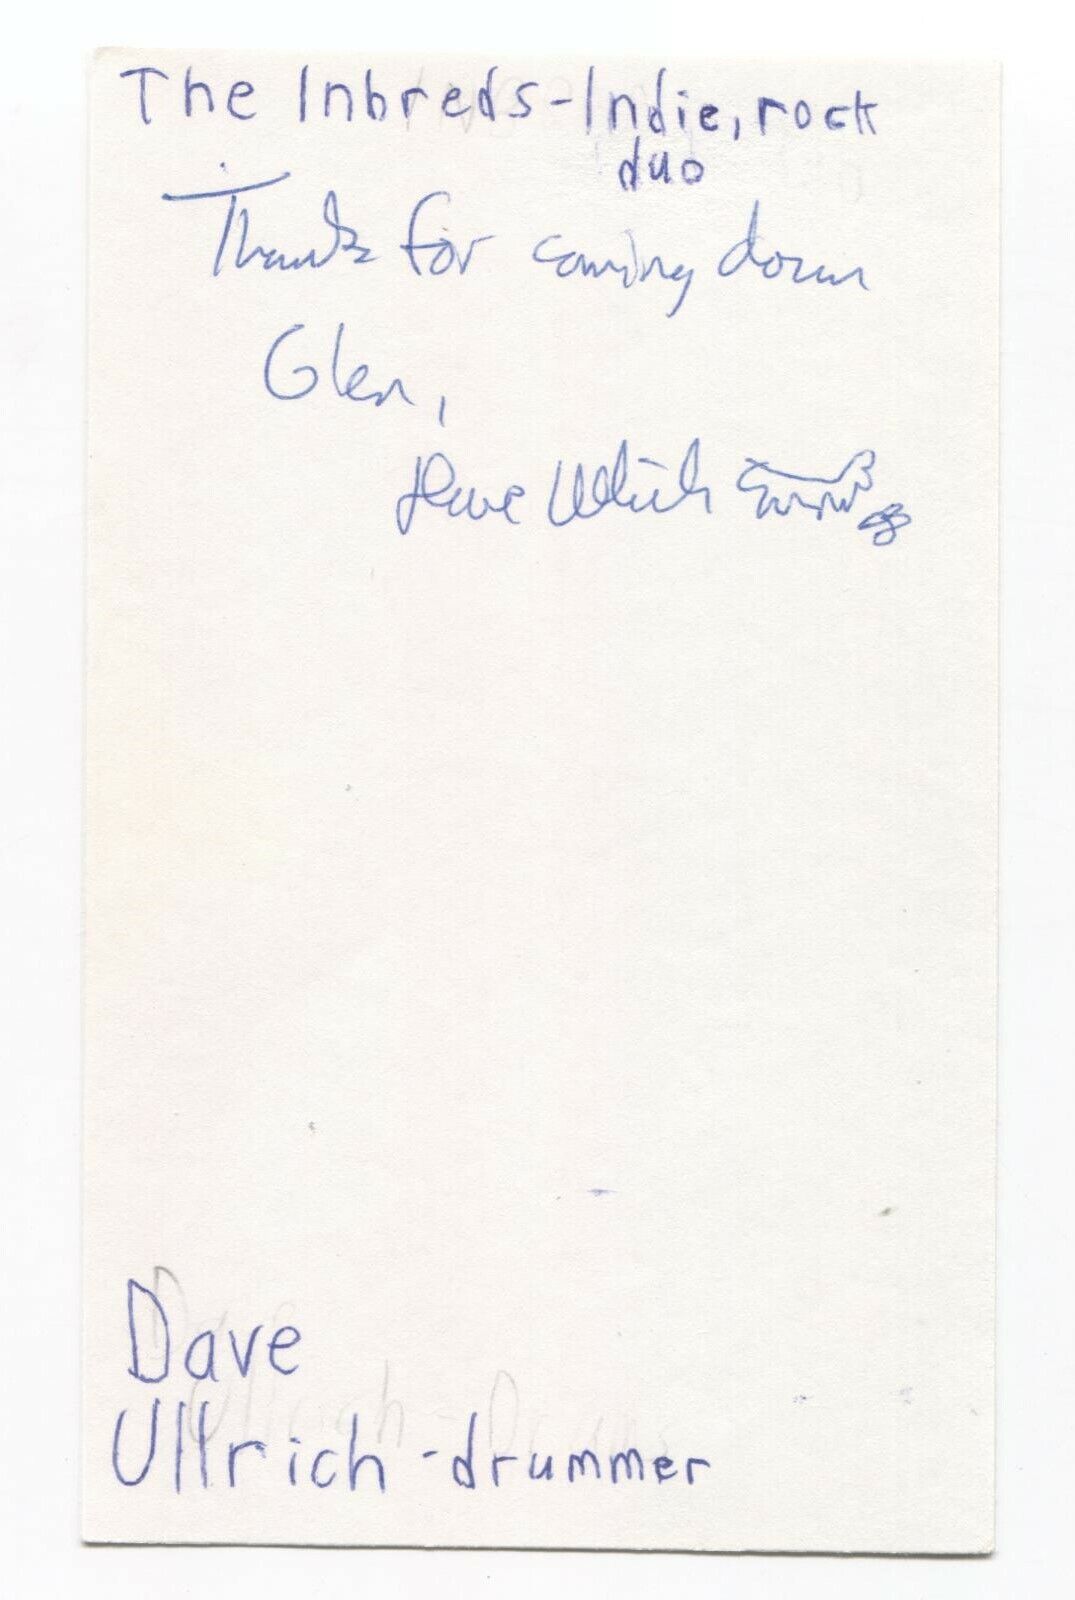 The Inbreds-Indie, rock
duo
Thanks for coming down
Glen,
Dave Ullrich
Dave
Ullrich -drummer